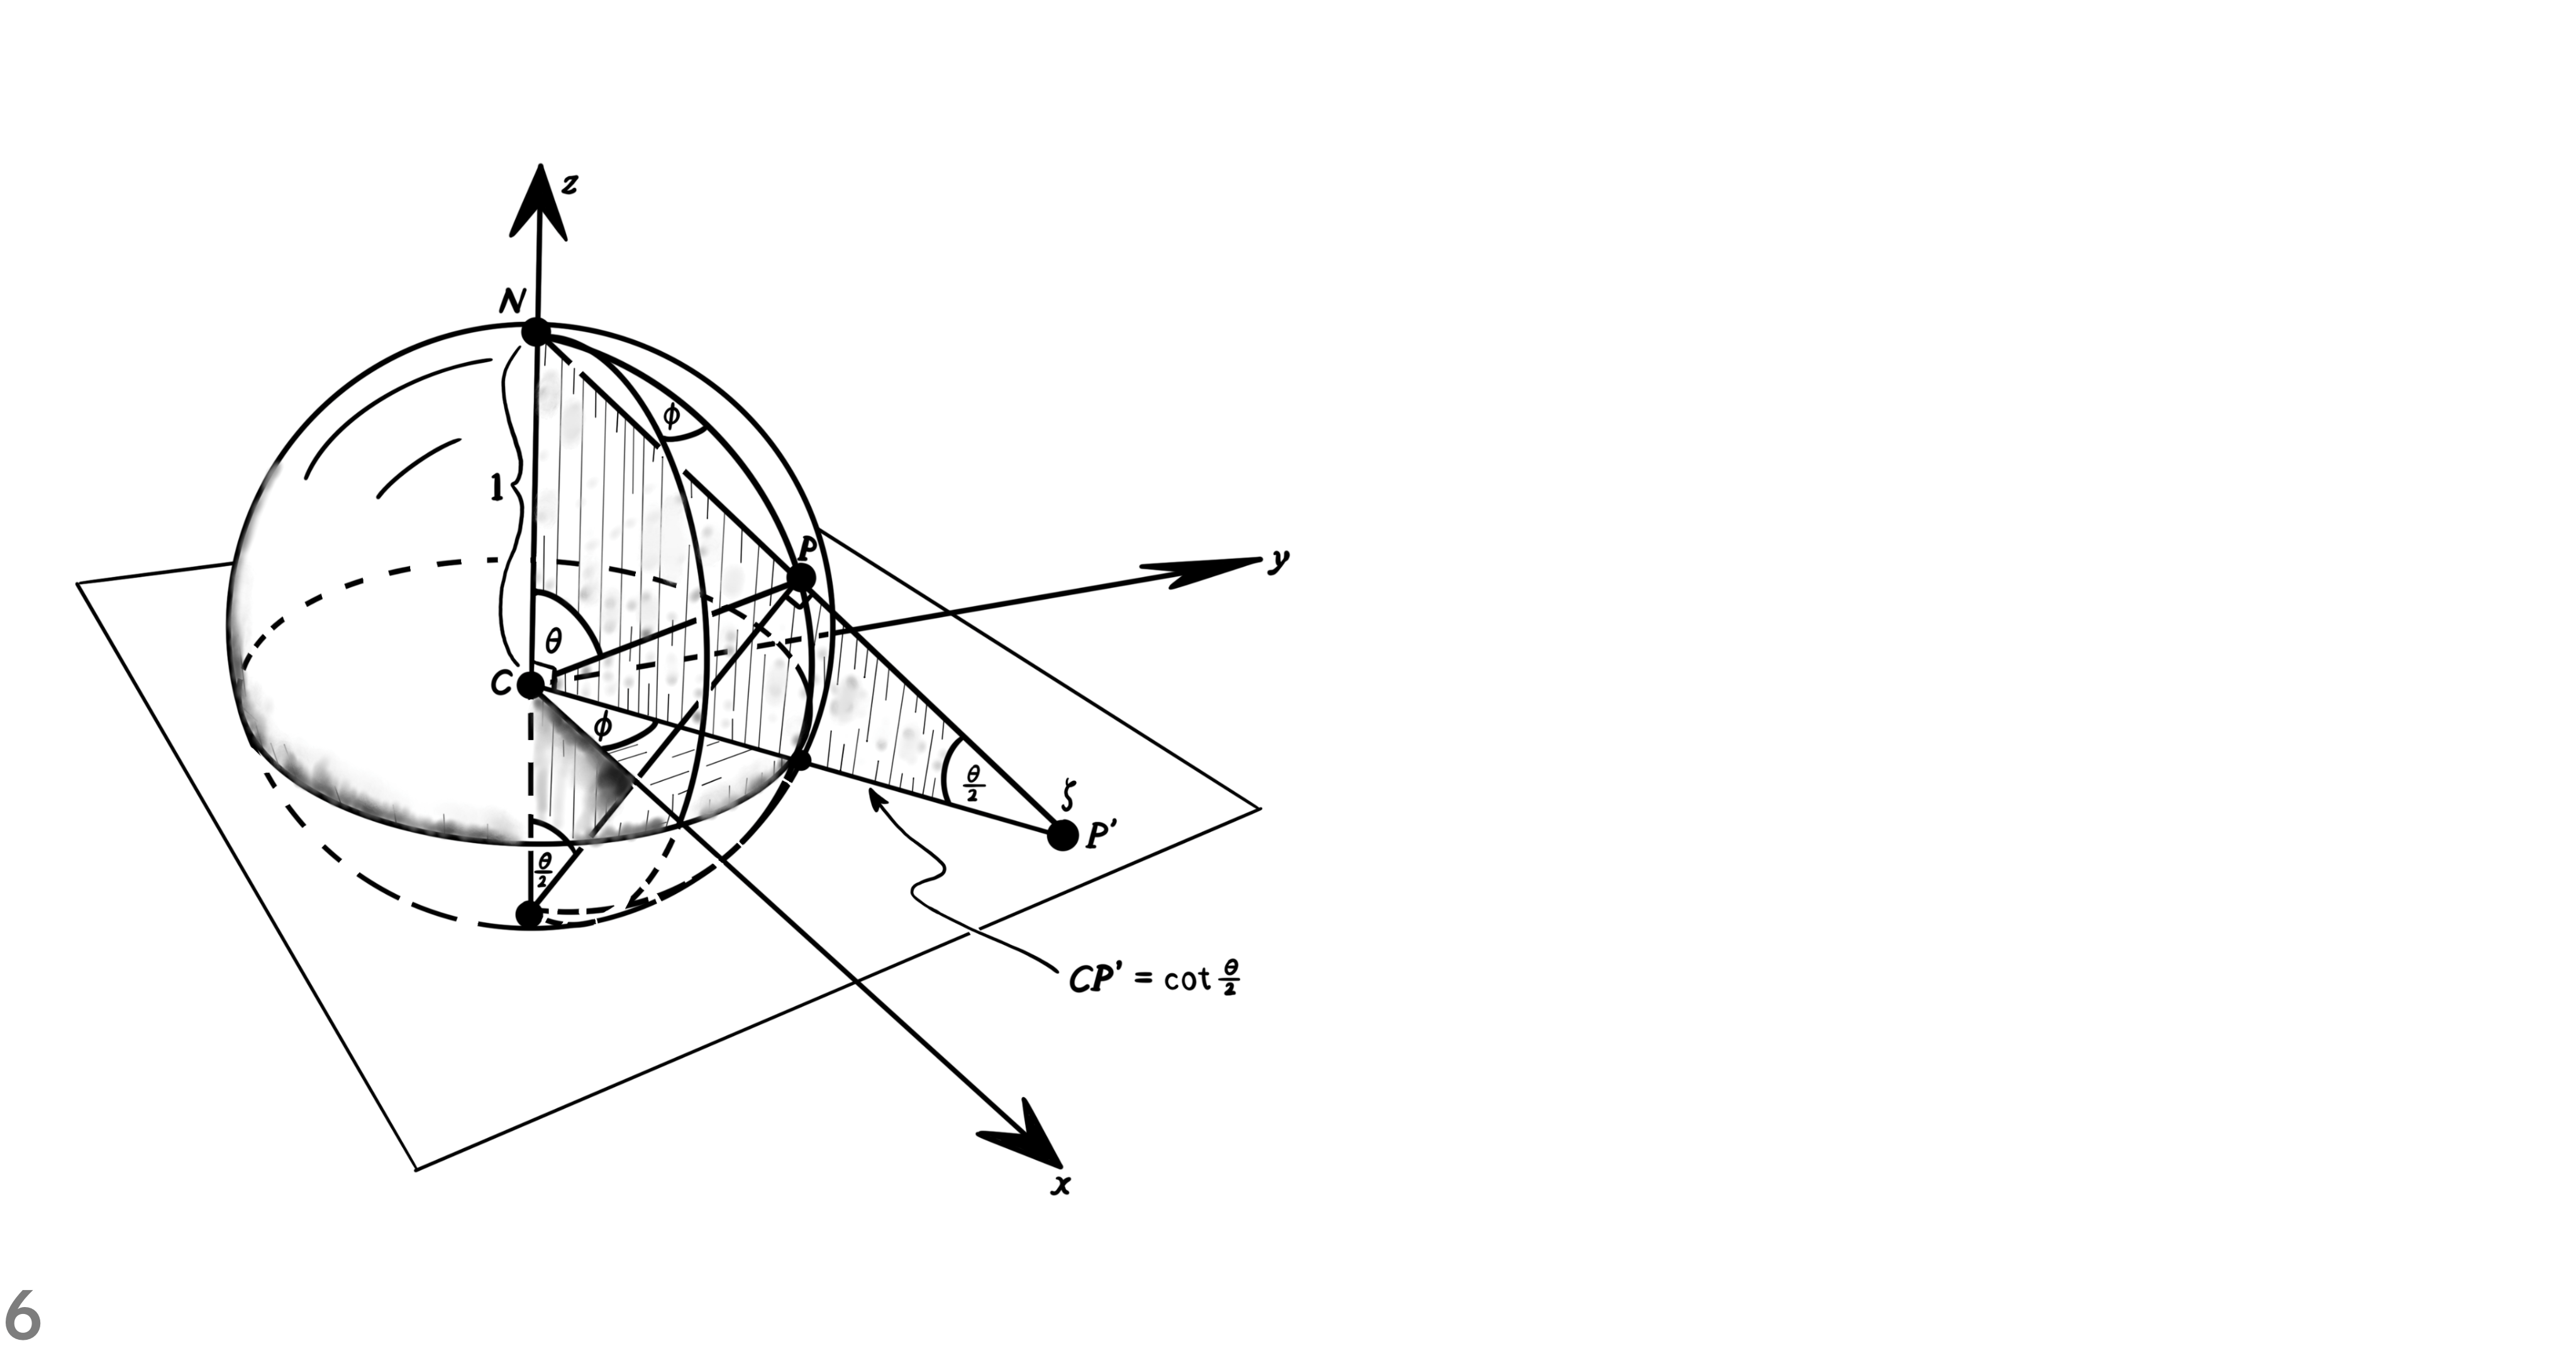 z
N
ϕ
1
P
y
θ
C
ϕ
θ/2
ζ
P'
θ/2
CP' = cot θ/2
x
6